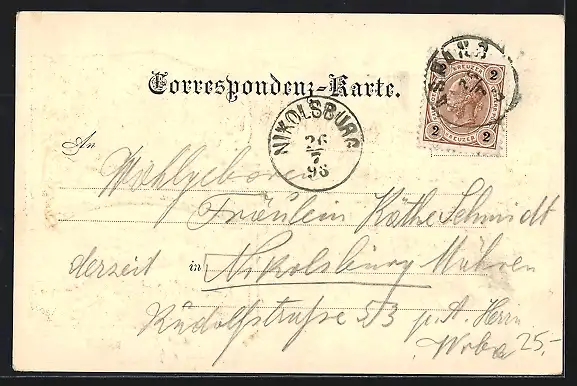 Correspondenz-Karte.
2 KREUZER 2
2 KREUZER 2
NIKOLSBURG
26
7
98
An Wohlgeboren
Fräulein Käthe Schmidt
derzeit in Nikolsburg Mähren
Rudolfstraße 53 p. A. Herrn
25.-